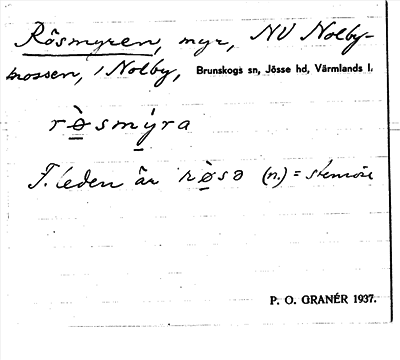 Rösmyren, myr, NV Nolby-
mossen, i Nolby, Brunskogs sn, Jösse hd, Värmlands l.
rə̀smýra
F. leden är rə̀sə (n.) = stenröse
P. O. GRANÉR 1937.